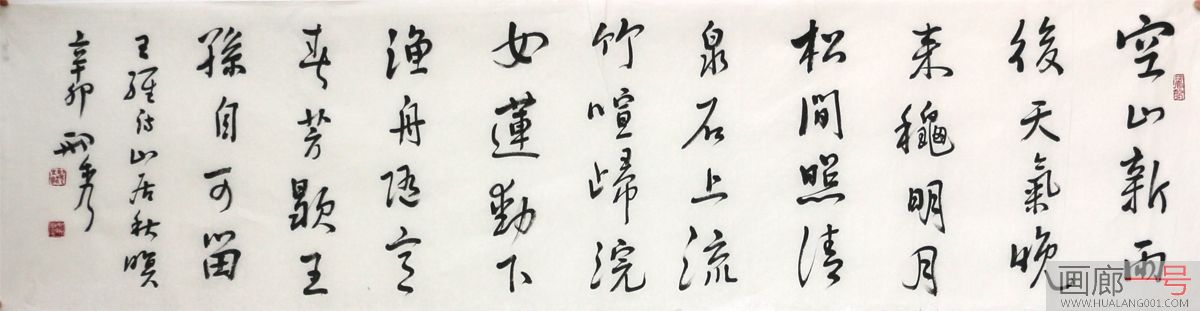 空山新雨
後天氣晚
来穐明月
松間照清
泉石上流
竹喧歸浣
女蓮動下
渔舟随意
春芳歇王
孫自可留
王維诗山居秋暝
辛卯
画廊一号
WWW.HUALANG001.COM